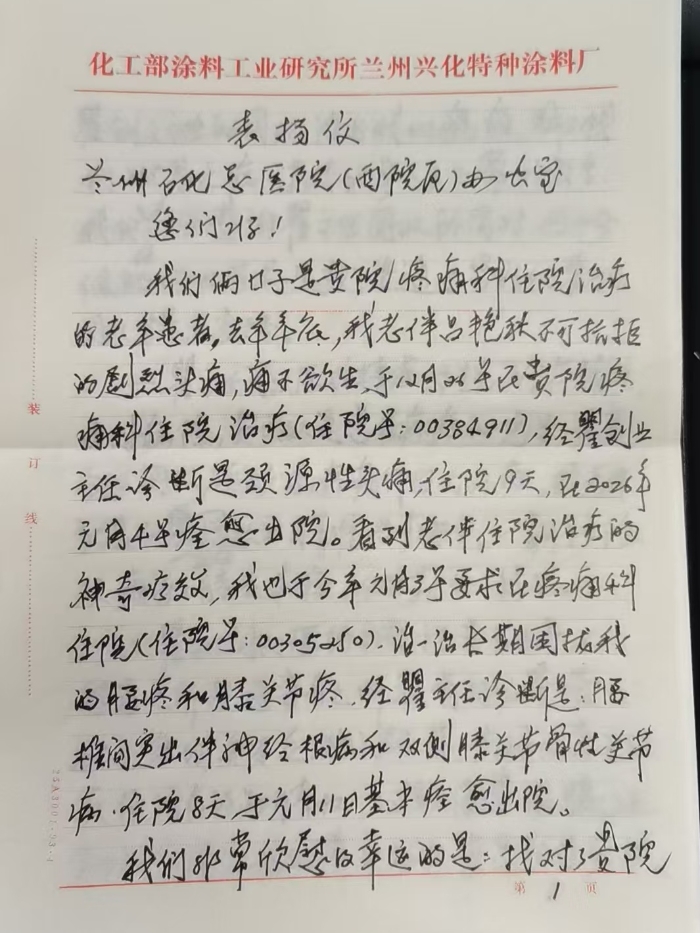 化工部涂料工业研究所兰州兴化特种涂料厂
表扬仪
兰州石化总医院(西院区)办公室
您们好!
我们俩口子是贵院疼痛科住院治疗
的老年患者。去年年底,我老伴吕艳秋不可抗拒
的剧烈头痛,痛不欲生,于12月26号在贵院疼
痛科住院治疗(住院号:00384911),经瞿创业
主任诊断是颈源性头痛,住院9天,在2026年
元月4号痊愈出院。看到老伴住院治疗的
神奇疗效,我也于今年元月3号要求在疼痛科
住院(住院号:00305250).治一治长期困扰我
的腰疼和膝关节疼.经瞿主任诊断是:腰
椎间突出伴神经根病和双侧膝关节骨性关节
病.住院8天,于元月11日基本痊愈出院。
我们非常欣慰及幸运的是:找对了贵院
装
订
线
第1页